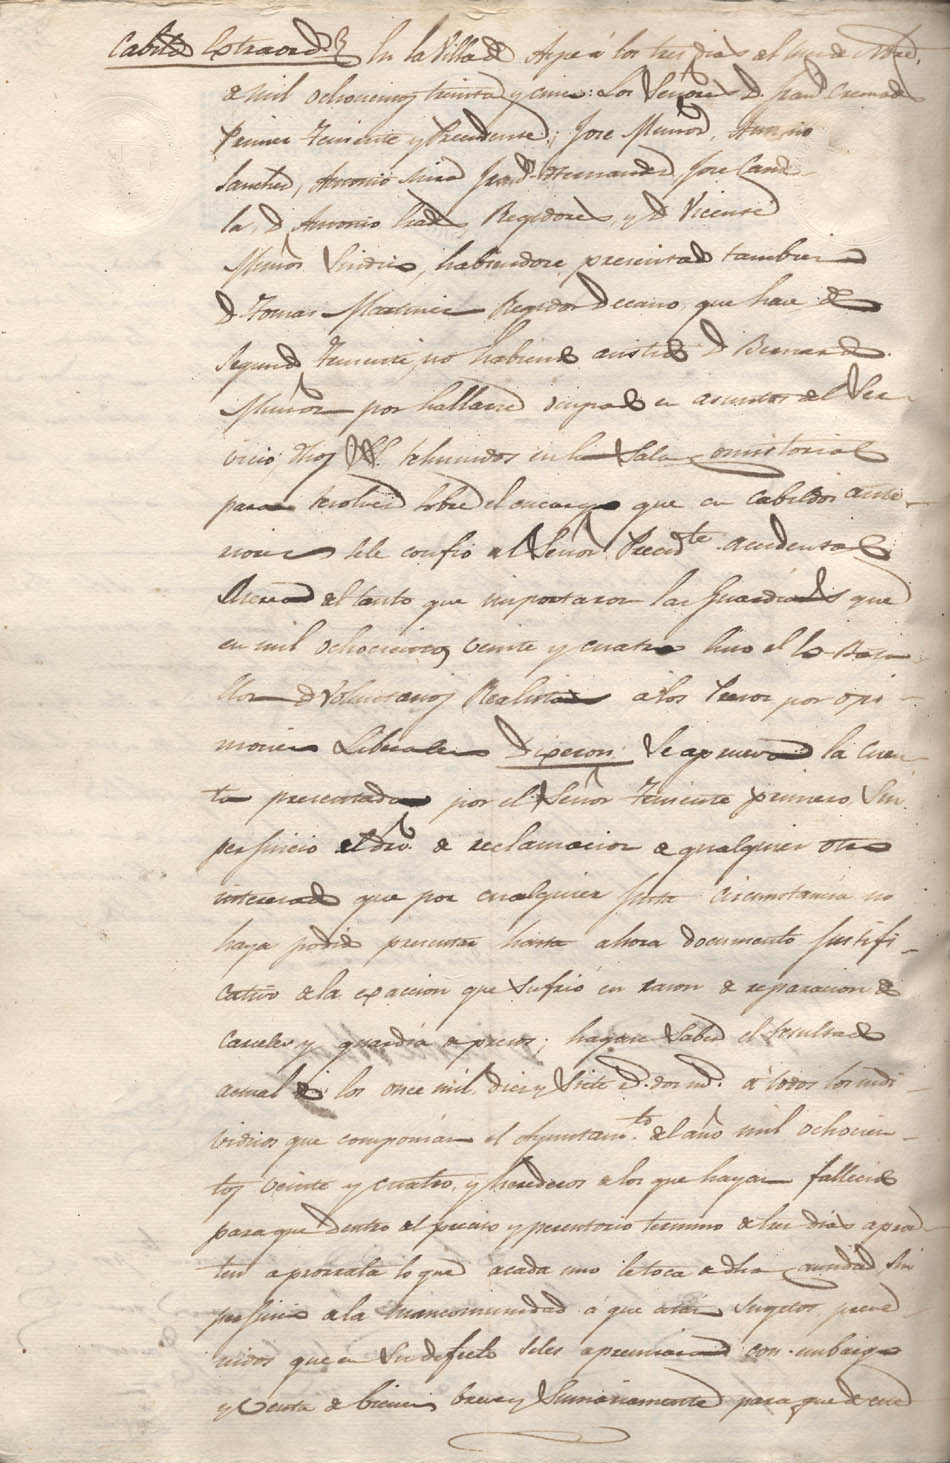 Cabildo Extraord.º En la Villa de Aspe á los tres dias del mes de Nbre.
de mil ochocientos treinta y cinco: Los Señores D. Fran.co Cremades
Primer Teniente y Presidente; Jose Muñoz, Antonio
Sanchez, Antonio Mira, Fran.co Hernandez, Jose Cande-
la, D. Antonio Regidores, y D. Vicente
Muñoz Sindico, habiendose presentado tambien
D. Tomas Martinez Regidor Decano, que hace de
Segundo Teniente, no habiendo asistido D. Bernardo
Muñoz por hallarse ocupado en asuntos del Ser-
vicio, dhos SS. rehunidos en la Sala Consistorial
para resolver sobre el encargo que en Cabildos ante-
riores se le confió al Señor Presid.te accidental
Acerca del tanto que importaron las Guardias que
en mil ochocientos veinte y cuatro hizo el Ex Bata-
llon de Voluntarios Realistas a los Presos por opi-
niones Liberales Dixeron: Se aprueva la cuen-
ta presentada por el Señor Teniente primero, Sin
perjuicio del dro. de reclamacion de qualquier otro
interesado que por cualquier justa circunstancia no
haya podido presentar hasta ahora documento justifi-
cativo de la exaccion que sufrió en razon de reparacion de
Carceles y guardia de presos; hagase saber el resultado
actual de los once mil diez y siete r.s dos m.s á todos los indi-
viduos que componian el Ayuntam.to del año mil ochocien-
tos veinte y cuatro, y herederos de los que hayan fallecido
para que dentro el preciso y perentorio termino de tres dias apron-
ten a prorrata lo que á cada uno le toca de dha cantidad, sin
perjuicio de la mancomunidad á que están sugetos, preve-
nidos que en su defecto seles apremiará con embargo
y Venta de bienes breve y Sumariamente para que de este